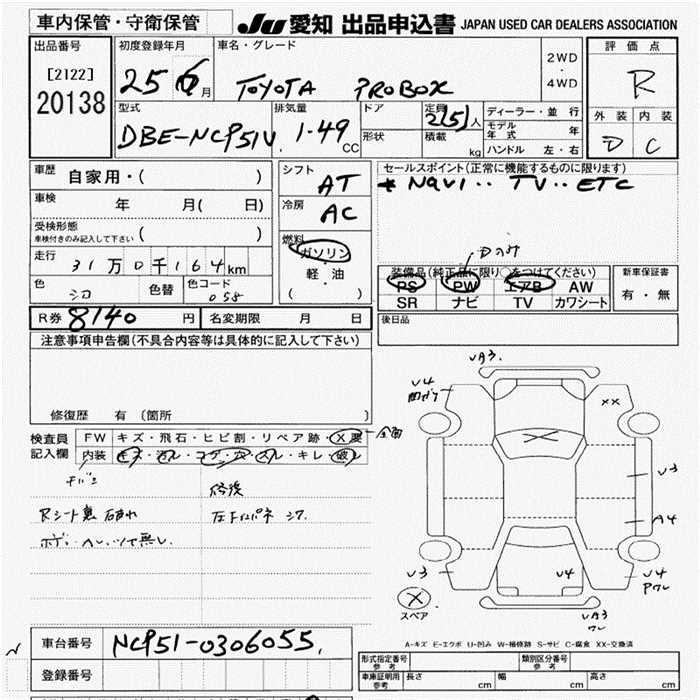 車内保管・守衛保管
JU 愛知 出品申込書 JAPAN USED CAR DEALERS ASSOCIATION
出品番号
[2122]
20138
初度登録年月
25 6 月
車名・グレード
TOYOTA PROBOX
2WD
・
4WD
評価点
R
外装 内装
D C
型式
DBE-NCP51V
排気量
1.49 CC
ドア
形状
定員
2(5)人
積載
kg
ディーラー・並行
モデル年式 年
ハンドル 左・右
車歴 自家用・( )
車検 年 月( 日)
受検形態
車検付きのみ記入して下さい ( )
走行 31万0千164km
色 シロ 色替 色コード 058
シフト AT
冷房 AC
燃料
ガソリン
軽・油
( )
セールスポイント(正常に機能するものに限ります)
* NAVI・・TV・・ETC
Dのみ
装備品(純正品に限り○をつけてください)
PS PW エアB AW
SR ナビ TV カワシート
新車保証書
有・無
R券 8140 円 名変期限 月 日
後日品
注意事項申告欄(不具合内容等は具体的に記入して下さい)
修復歴 有(箇所 )
検査員
記入欄
FW キズ・飛石・ヒビ割・リペア跡・X要
内装 キズ・汚ル・コゲ・穴・スレ・キレ・破レ
Rシート裏
修後
U4
UA3
XX
U3
A4
U3
U4
U4
UA3
X
スペア
A-キズ E-エクボ U-凹み W-補修跡 S-サビ C-腐食 XX-交換済
車台番号 NCP51-0306055
登録番号
形式指定番号
参考
類別区分番号
参考
車庫証明用
参考
長さ cm 幅 cm 高さ cm